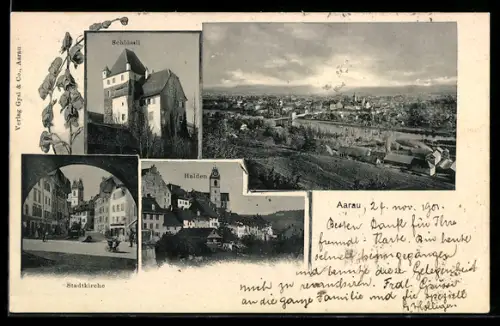 Verlag Gysi & Co., Aarau
Schlössli
Halden
Stadtkirche
Aarau, 24. nov. 1901.
Besten Dank für Ihre
fremdl. Karte. Bin heute
selbst heimgegangen
und benutze diese Gelegenheit
mich zu revanchieren. Frdl. Grüsse
an die ganze Familie und Sie speziell